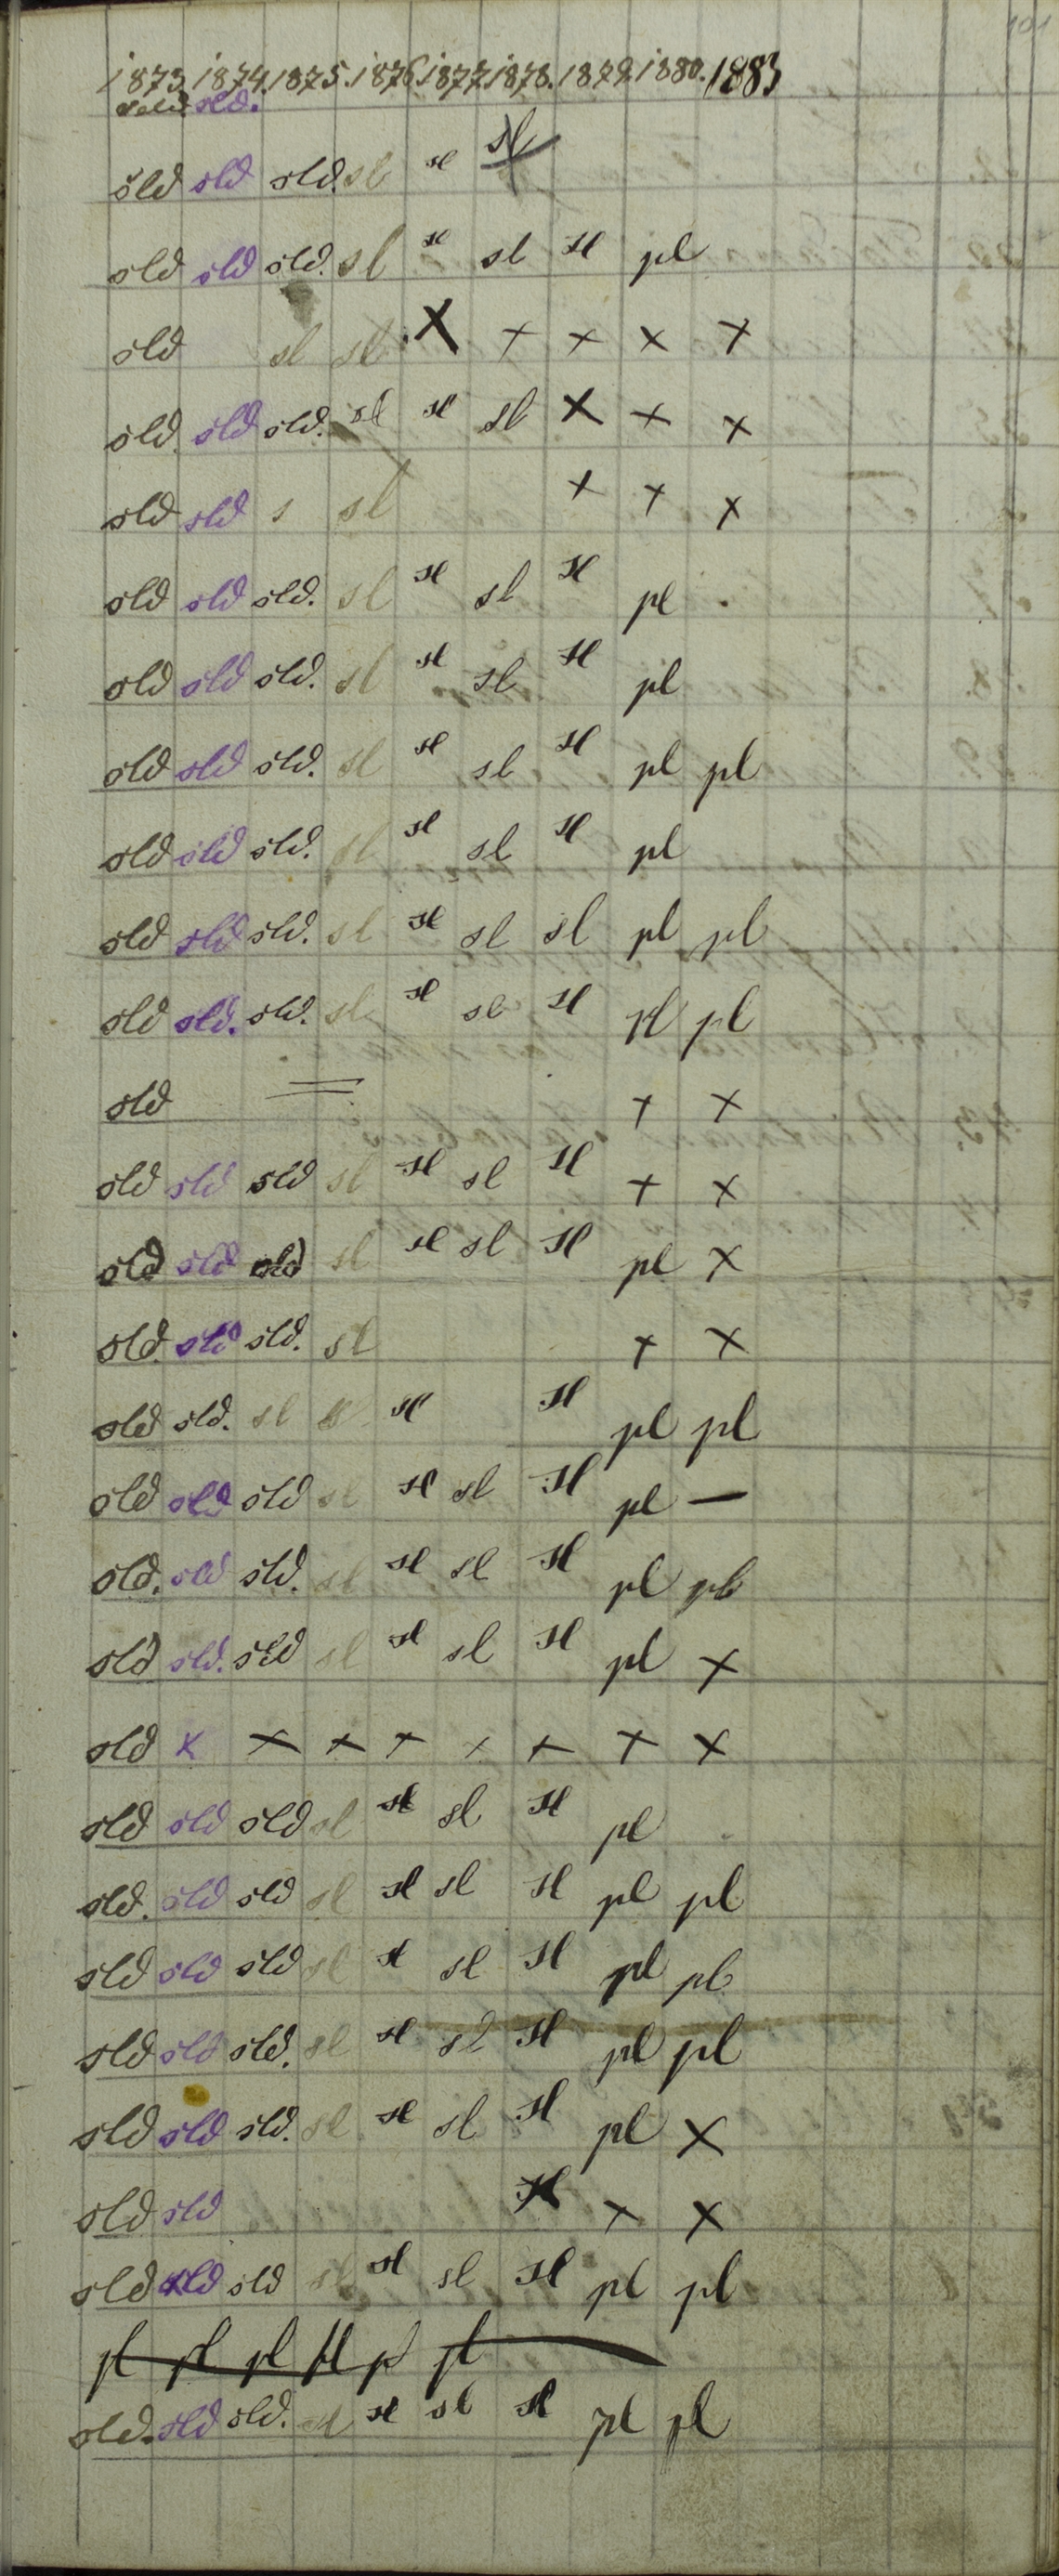 101
1873. 1874. 1875. 1876. 1877. 1878. 1879. 1880. 1883
sld.
sld sld sld. sl sl sl
sld sld sld. sl sl sl sl pl
sld sl sl X + + x +
sld. sld sld. sl sl sl X + x
sld sld s sl + + x
sld sld sld. sl sl sl sl pl .
sld sld sld. sl sl sl sl pl
sld sld sld. sl sl sl sl pl pl
sld sld sld. sl sl sl sl pl
sld sld sld. sl sl sl sl pl pl
sld sld. sld. sl sl sl sl pl pl
sld = + x
sld sld sld sl sl sl sl + x
sld sld sld sl sl sl sl pl x
sld. sld sld. sl + x
sld sld. sl sl sl sl pl pl
sld sld sld sl sl sl sl pl —
sld. sld sld. sl sl sl sl pl pl
sld sld. sld sl sl sl sl pl x
sld x x + + x + + x
sld sld sld sl sl sl sl pl
sld. sld sld sl sl sl sl pl pl
sld sld sld sl sl sl sl pl pl
sld sld sld. sl sl sl sl pl pl
sld sld sld. sl sl sl sl pl X
sld sld + x
sld sld sld sl sl sl sl pl pl
pl pl pl pl p pl
sld. sld sld. sl sl sl sl pl pl